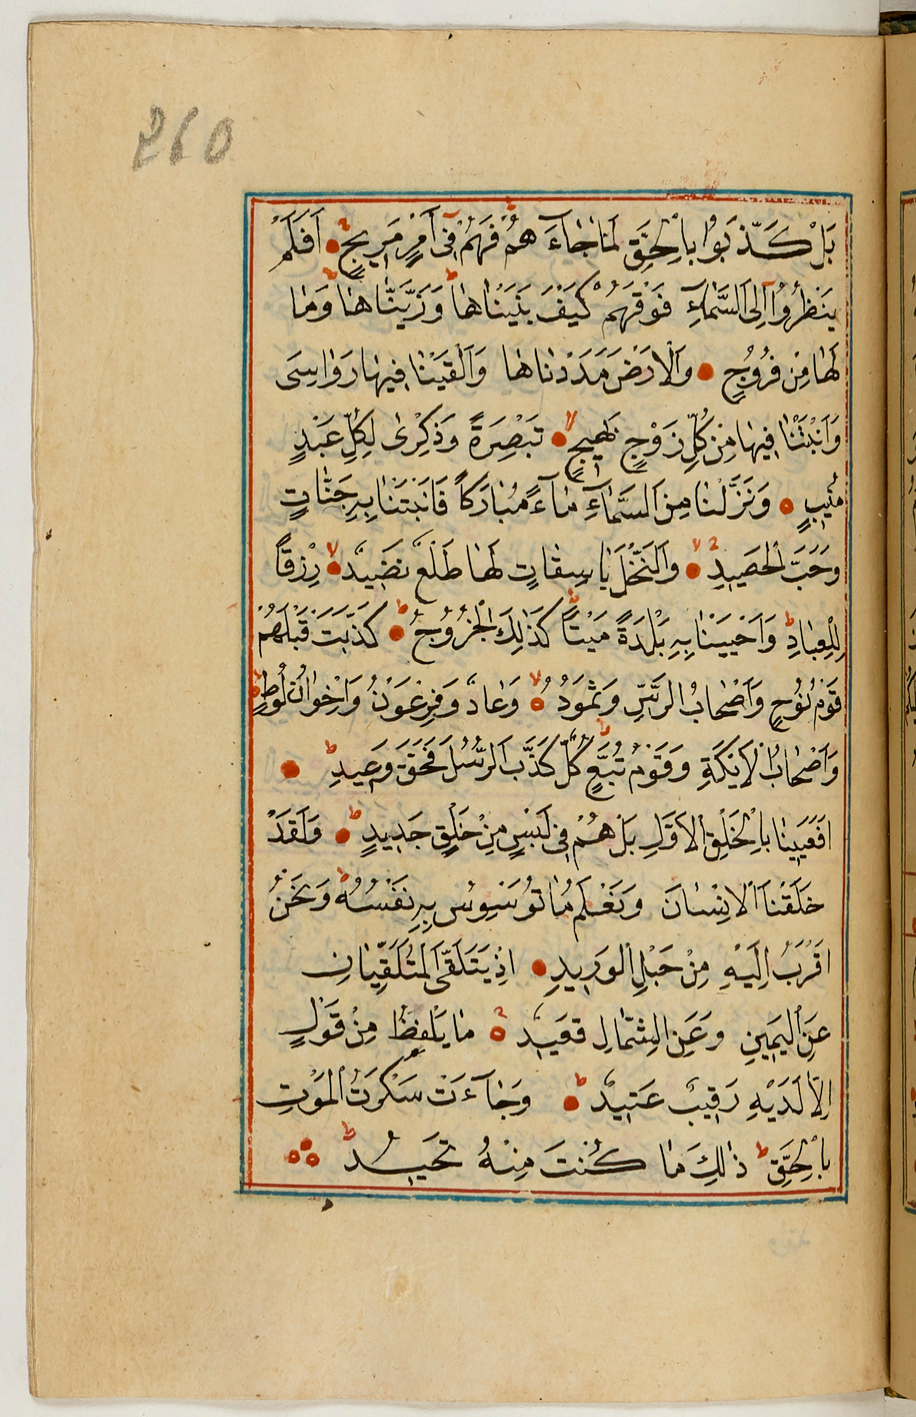 260
بَلْ كَذَّبُوا بِالْحَقِّ لَمَّا جَاءَهُمْ فَهُمْ فِى اَمْرٍ مَرِيجٍ اَفَلَمْ
يَنْظُرُوا اِلَى السَّمَاءِ فَوْقَهُمْ كَيْفَ بَنَيْنَاهَا وَزَيَّنَّاهَا وَمَا
لَهَا مِنْ فُرُوجٍ وَالْاَرْضَ مَدَدْنَاهَا وَاَلْقَيْنَا فِيهَا رَوَاسِىَ
وَاَنْبَتْنَا فِيهَا مِنْ كُلِّ زَوْجٍ بَهِيجٍ تَبْصِرَةً وَذِكْرٰى لِكُلِّ عَبْدٍ
مُنِيبٍ وَنَزَّلْنَا مِنَ السَّمَاءِ مَاءً مُبَارَكًا فَاَنْبَتْنَا بِهِ جَنَّاتٍ
وَحَبَّ الْحَصِيدِ وَالنَّخْلَ بَاسِقَاتٍ لَهَا طَلْعٌ نَضِيدٌ رِزْقًا
لِلْعِبَادِ وَاَحْيَيْنَا بِهِ بَلْدَةً مَيْتًا كَذٰلِكَ الْخُرُوجُ كَذَّبَتْ قَبْلَهُمْ
قَوْمُ نُوحٍ وَاَصْحَابُ الرَّسِّ وَثَمُودُ وَعَادٌ وَفِرْعَوْنُ وَاِخْوَانُ لُوطٍ
وَاَصْحَابُ الْاَيْكَةِ وَقَوْمُ تُبَّعٍ كُلٌّ كَذَّبَ الرُّسُلَ فَحَقَّ وَعِيدِ
اَفَعَيِينَا بِالْخَلْقِ الْاَوَّلِ بَلْ هُمْ فِى لَبْسٍ مِنْ خَلْقٍ جَدِيدٍ وَلَقَدْ
خَلَقْنَا الْاِنْسَانَ وَنَعْلَمُ مَا تُوَسْوِسُ بِهِ نَفْسُهُ وَنَحْنُ
اَقْرَبُ اِلَيْهِ مِنْ حَبْلِ الْوَرِيدِ اِذْ يَتَلَقَّى الْمُتَلَقِّيَانِ
عَنِ الْيَمِينِ وَعَنِ الشِّمَالِ قَعِيدٌ مَا يَلْفِظُ مِنْ قَوْلٍ
اِلَّا لَدَيْهِ رَقِيبٌ عَتِيدٌ وَجَاءَتْ سَكْرَتُ الْمَوْتِ
بِالْحَقِّ ذٰلِكَ مَا كُنْتَ مِنْهُ تَحِيدُ